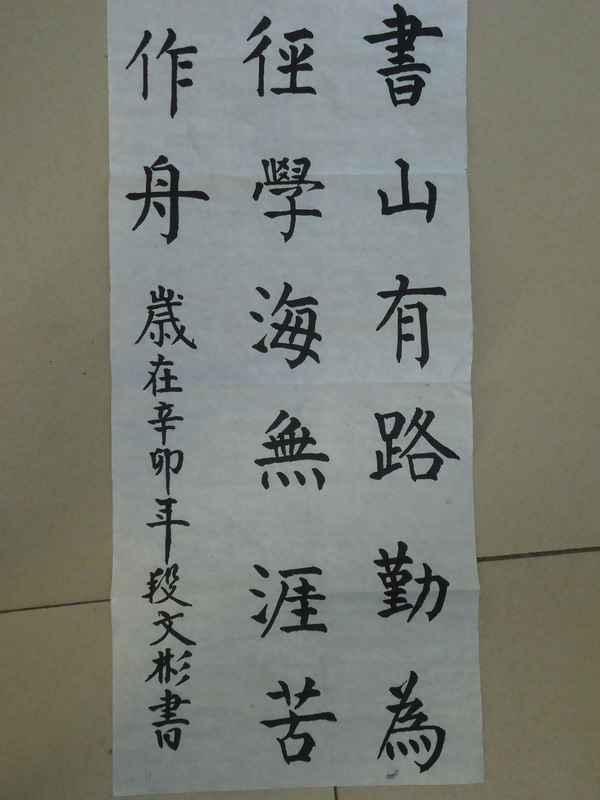 書山有路勤為
徑學海無涯苦
作舟
歳在辛卯年段文彬書